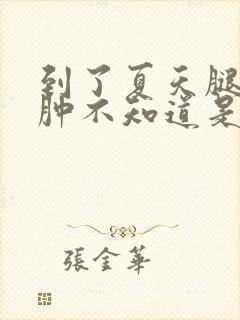 到了夏天腿
肿不知道是
張金華